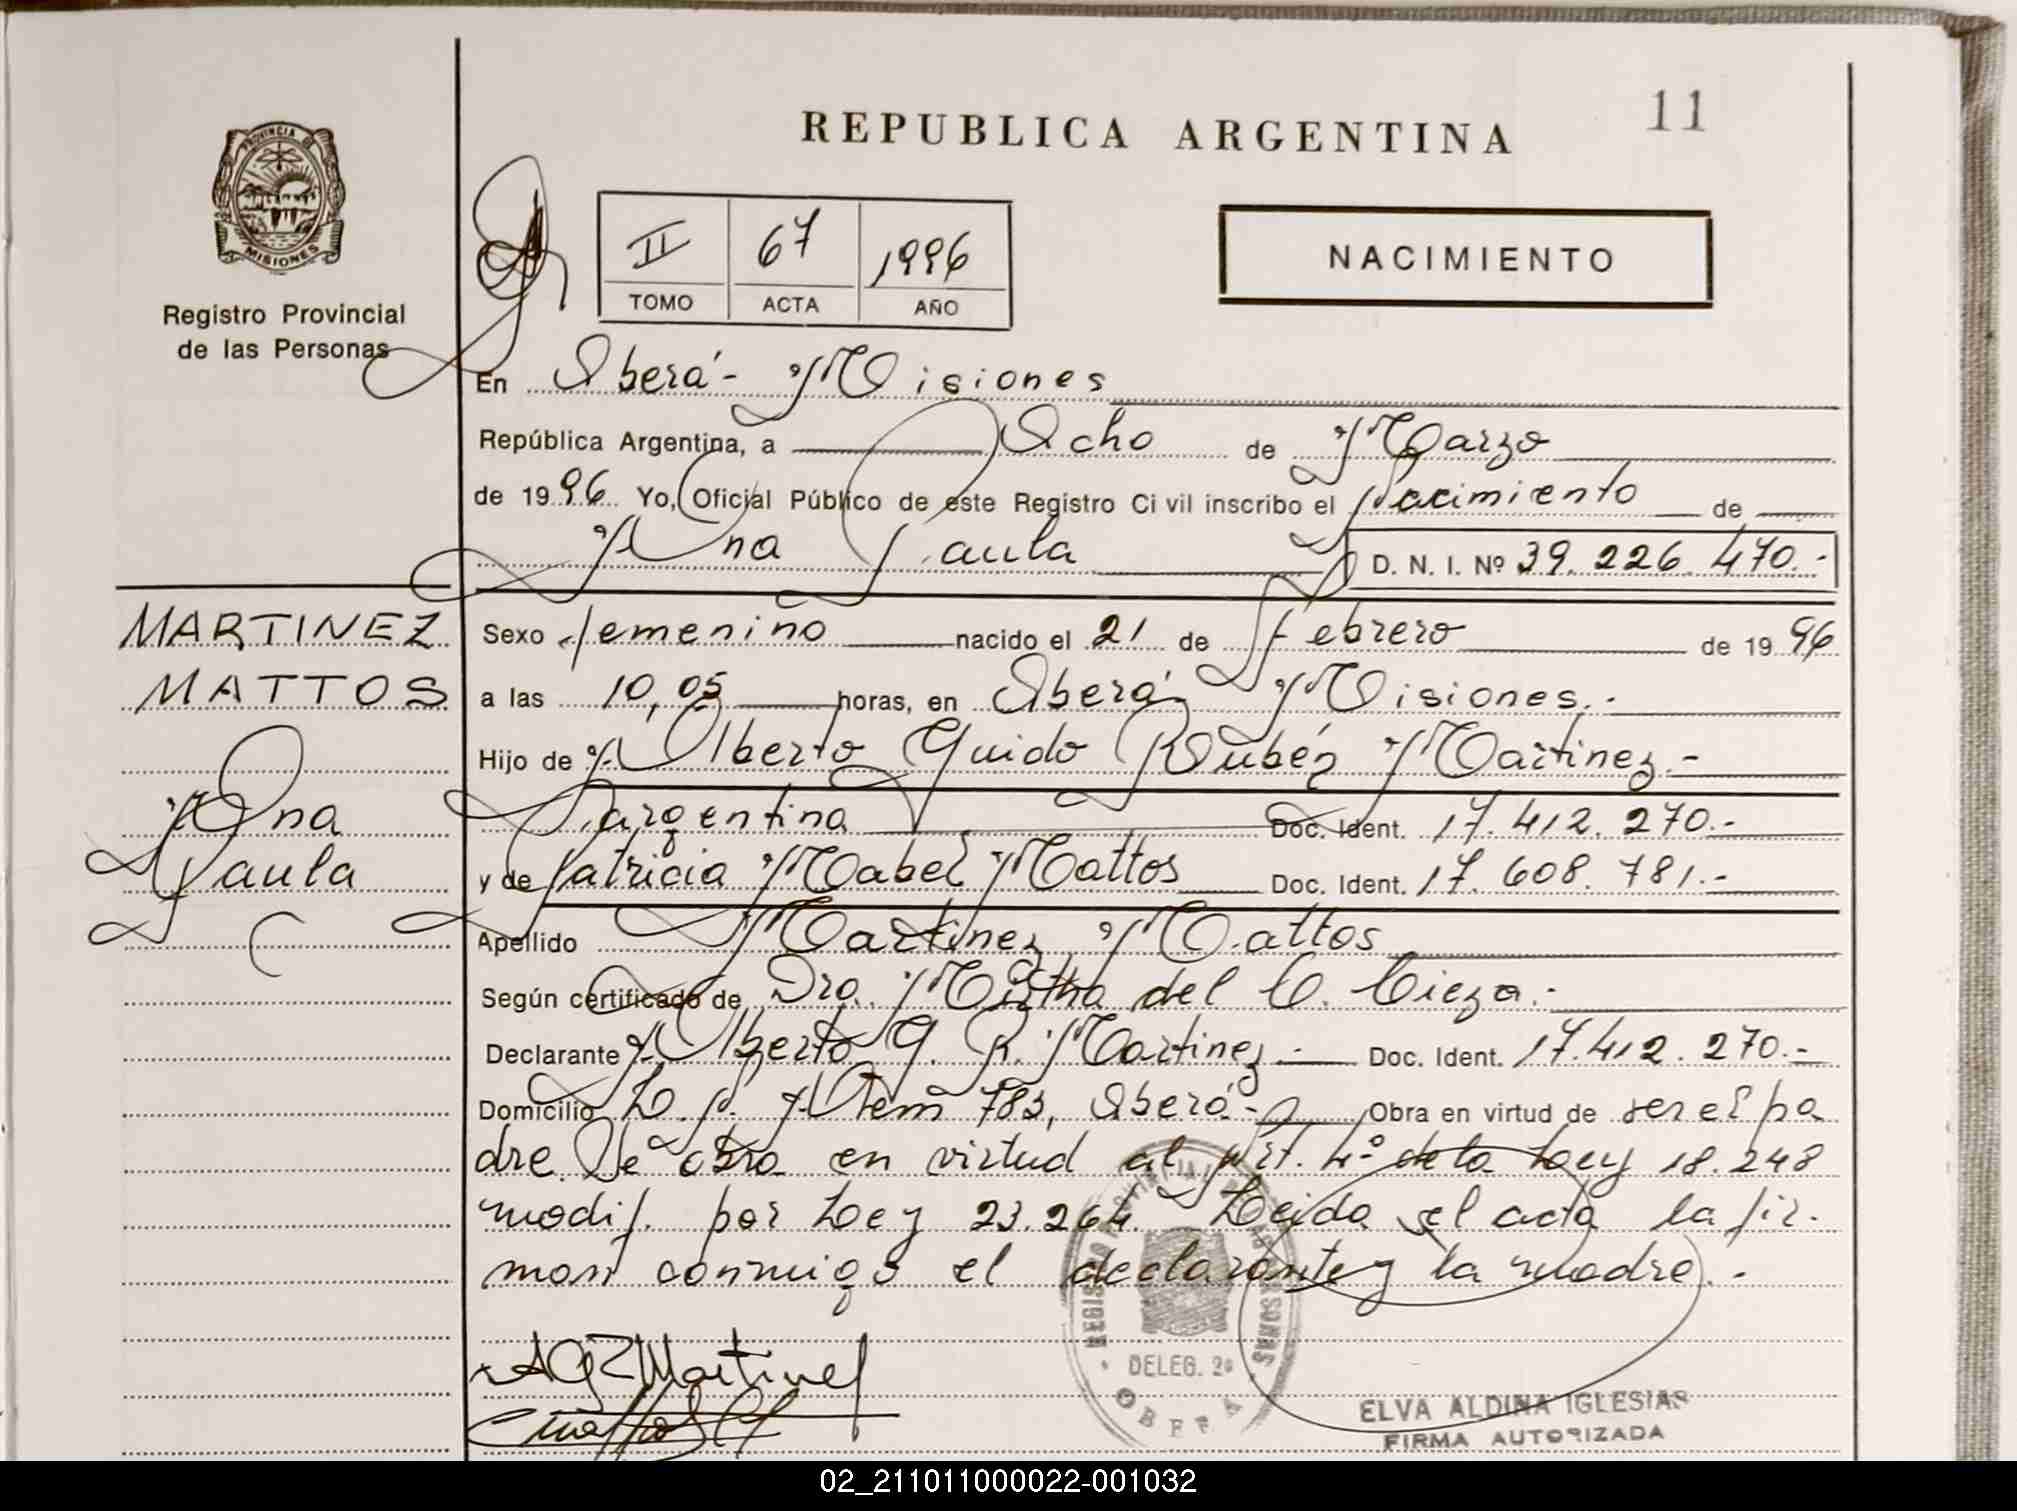 11
REPUBLICA ARGENTINA
PROVINCIA D
MISIONES
Registro Provincial
de las Personas
II 67 1996
TOMO ACTA AÑO
NACIMIENTO
En Oberá - Misiones
República Argentina, a Ocho de Marzo
de 1996 Yo, Oficial Público de este Registro Ci vil inscribo el Nacimiento de
Ana Paula D. N. I. Nº 39.226.470.-
MARTINEZ
MATTOS
Ana
Paula
Sexo femenino nacido el 21 de Febrero de 1996
a las 10,05 horas, en Oberá Misiones.-
Hijo de Alberto Guido Rubén Martinez.-
argentina Doc. Ident. 17.412.270.-
y de Patricia Mabel Mattos Doc. Ident. 17.608.781.-
Apellido Martinez Mattos
Según certificado de Dra. Mirtha del C. Cieza.-
Declarante Alberto G. R. Martinez.- Doc. Ident. 17.412.270.-
Domicilio L. N. Alem 783, Oberá.- Obra en virtud de ser el pa
dre. Se obra en virtud al Art. 4º de la Ley 18.248
modif. por Ley 23.264. Leida el acta la fir-
man conmigo el declarante y la madre.-
AGRMartinez
REGISTRO PROVINCIAL DE LAS PERSONAS
DELEG. 2ª
OBERA
ELVA ALDINA IGLESIAS
FIRMA AUTORIZADA
02_211011000022-001032